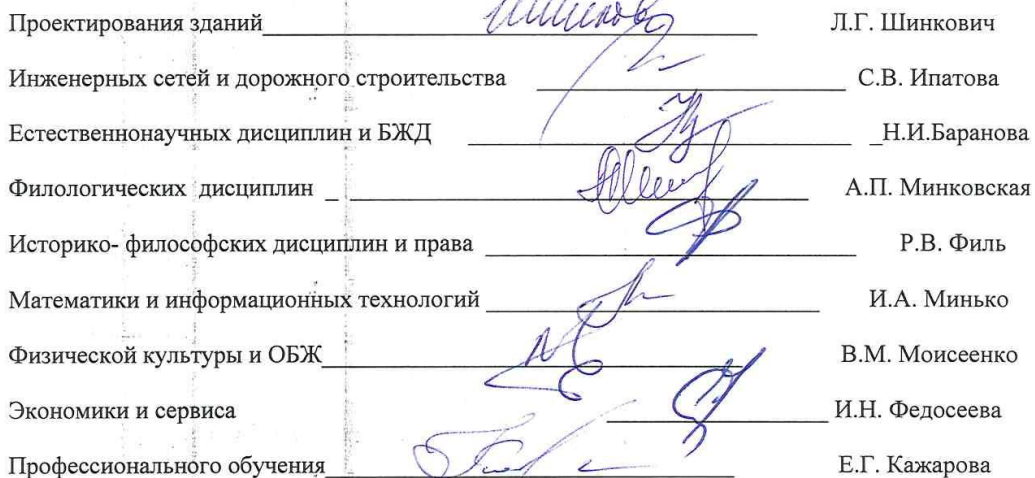 Проектирования зданий Л.Г. Шинкович
Инженерных сетей и дорожного строительства С.В. Ипатова
Естественнонаучных дисциплин и БЖД _Н.И.Баранова
Филологических дисциплин _ А.П. Минковская
Историко- философских дисциплин и права Р.В. Филь
Математики и информационных технологий И.А. Минько
Физической культуры и ОБЖ В.М. Моисеенко
Экономики и сервиса И.Н. Федосеева
Профессионального обучения Е.Г. Кажарова